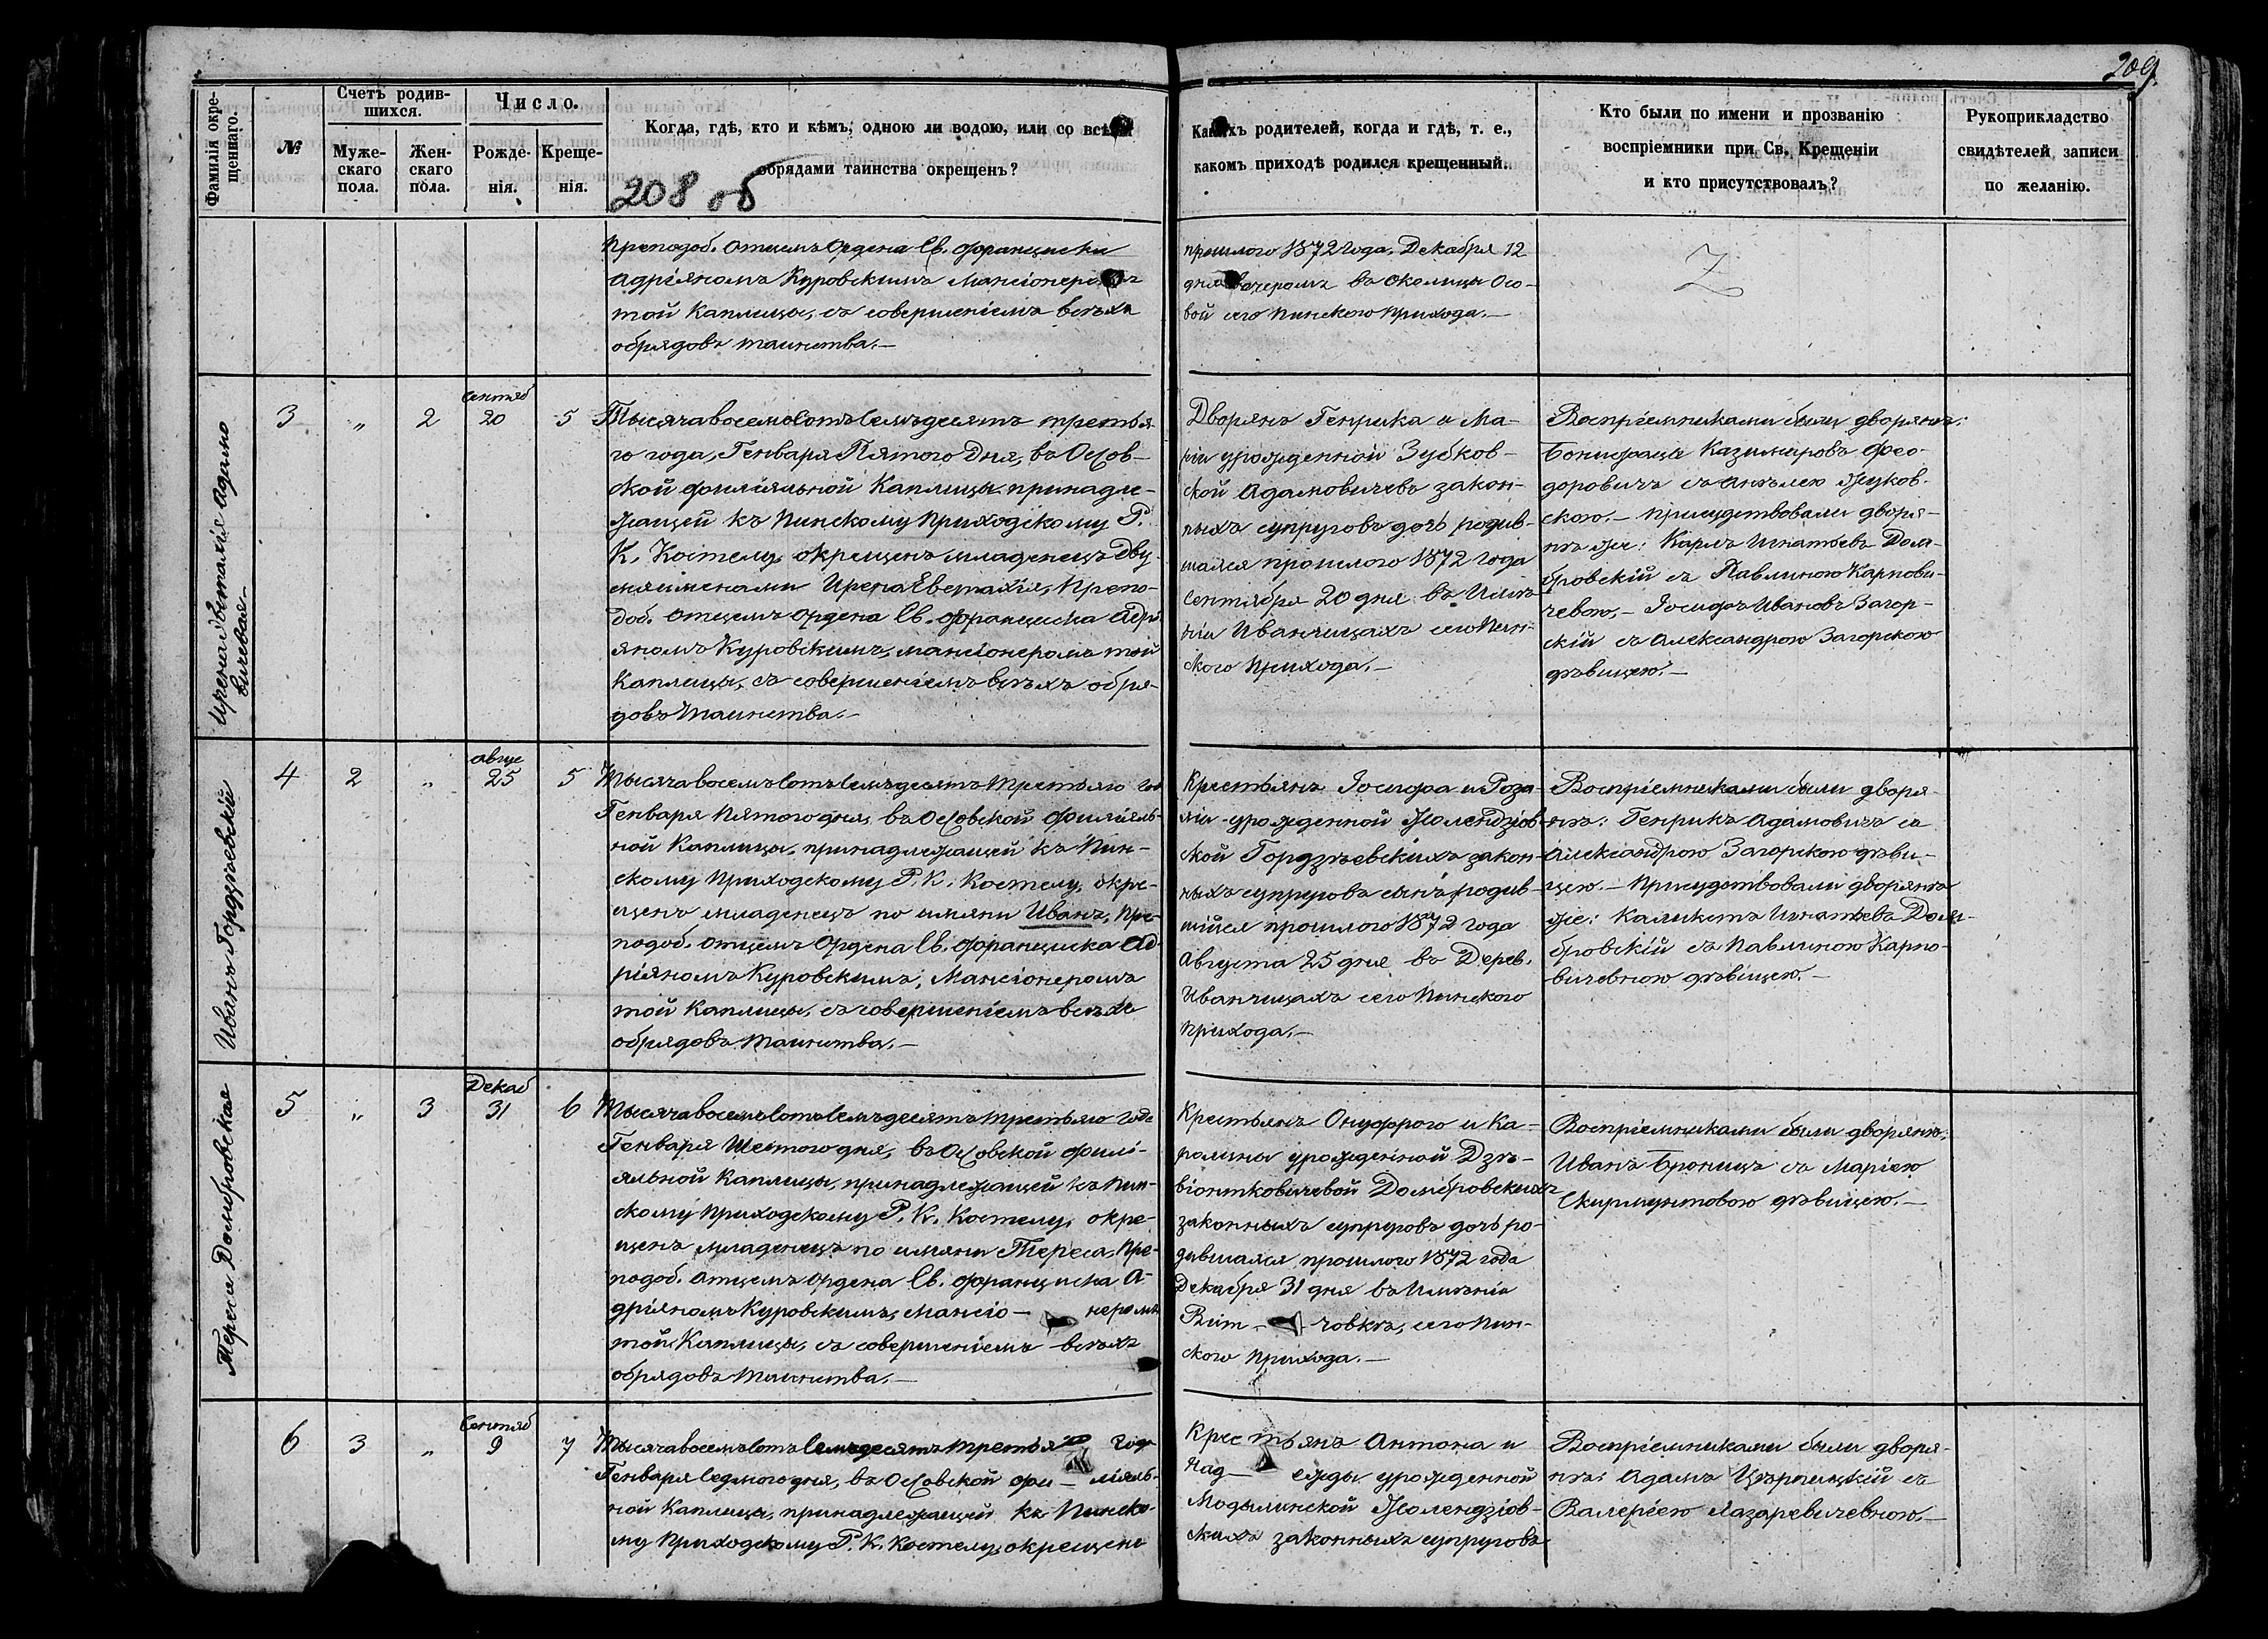 209
Фамилія окре-
щеннаго.
№
Счетъ родив-
шихся.
Муже-
скаго
пола.
Жен-
скаго
пола.
Число.
Рожде-
нія.
Креще-
нія.
Когда, гдѣ, кто и кѣмъ, одною ли водою, или со всѣми
обрядами таинства окрещенъ?
208 об
Какихъ родителей, когда и гдѣ, т. е.,
какомъ приходѣ родился крещенный.
Кто были по имени и прозванію
воспріемники при Св. Крещеніи
и кто присутствовалъ?
Рукоприкладство
свидѣтелей записи
по желанію.
Преподоб. Отцемъ Ордена Св. Франциска
Адріяномъ Куровскимъ Мансіонеромъ
той Каплицы, съ совершеніемъ всѣхъ
обрядовъ таинства.—
прошлого 1872 года, Декабря 12
дня вечеромъ въ околицы Осо-
вой сего Пинского Прихода.—
Ирена Евстахія Адамо
вичевая—
3
"
2
Сентяб
20
5
Тысяча восемьсотъ семьдесятъ третья-
го года, Генваря Пятого Дня, въ Осов-
ской филіяльной Каплицы принадле-
жащей къ Пинскому Приходскому Р.
К. Костелу, окрещенъ младенецъ дву
мя именами Ирена Евстахія, Препо-
доб. Отцемъ Ордена Св. Франциска Адрі
яномъ Куровскимъ, мансіонеромъ той
Каплицы, съ совершеніемъ всѣхъ обря-
довъ таинства.—
Дворянъ Генрика и Ма-
ріи урожденной Зубков-
ской Адамовичевъ закон-
ныхъ супруговъ дочь родив-
шаяся прошлого 1872 года
Сентября 20 дня въ Имѣ
ніи Иванчицахъ сего Пин-
ского Прихода.—
Воспріемниками были дворянѣ:
Бонифацы Казимировъ Фео-
доровичъ съ Анѣлею Жуков-
скою.— Присудствовали дворя-
нѣ же: Карлъ Игнатьевъ Дом-
бровскій съ Павлиною Карпови-
чевою,— Іосифъ Ивановъ Загор-
скій съ Александрою Загорскою
дѣвицею.—
Иванъ Гордзѣевскій
4
2
"
Авгус
25
5
Тысяча восемьсотъ семьдесятъ третьяго год
Генваря пятого дня, въ Осовской филіяль-
ной Каплицы, принадлежащей къ Пин-
скому Приходскому Р. К. Костелу, окре-
щенъ младенецъ по имяни Иванъ, Пре-
подоб. Отцемъ Ордена Св. Франциска Ад-
ріяномъ Куровскимъ, Мансіонеромъ
той Каплицы, съ совершеніемъ всѣхъ
обрядовъ таинства.—
Крестьянъ Іосифа и Роза-
ліи урожденной Жолендзіов-
ской Гордзѣевскихъ закон-
ныхъ супруговъ сынъ родив-
шійся прошлого 1872 года
Августа 25 дня въ Дерев.
Иванчицахъ сего Пинского
Прихода.—
Воспріемниками были дворя-
нѣ: Генрикъ Адамовичъ съ
Александрою Загорскою дѣви-
цею.— Присудствовали дворянѣ
же: Каликстъ Игнатьевъ Дом-
бровскій съ Павлиною Карпо-
вичевною дѣвицею.—
Тереса Домбровская
5
"
3
Декаб
31
6
Тысяча восемьсотъ семьдесятъ третьяго года
Генваря Шестого дня, въ Осовской филі-
яльной Каплицы, принадлежащей къ Пин-
скому Приходскому Р. К. Костелу, окре-
щенъ младенецъ по имяни Тереса, Пре-
подоб. Отцемъ Ордена Св. Франциска А-
дріяномъ Куровскимъ, мансіо— неромъ
той Каплицы, съ совершеніемъ всѣхъ
обрядовъ таинства.—
Крестьянъ Онуфрого и Ка-
ролины урожденной Дзѣ-
віонтковичевой Домбровскихъ
законныхъ супруговъ дочь ро-
дившаяся прошлого 1872 года
Декабря 31 дня въ Имѣніи
Вит— човкѣ, сего Пин-
ского Прихода.—
Воспріемниками были дворянѣ,
Иванъ Броницъ съ Маріею
Скирмунтовою дѣвицею.—
6
3
"
Сентяб
9
7
Тысяча восемьсотъ семьдесятъ третьяго год
Генваря седмого дня, въ Осовской фи— ліяль-
ной Каплицы, принадлежащей къ Пинско-
му Приходскому Р. К. Костелу, окрещенъ
Крестьянъ Антона и
Над— ежды урожденной
Модылинской Жолендзіов-
скихъ законныхъ супруговъ
Воспріемниками были дворя-
нѣ: Адамъ Цѣрпицкій съ
Валеріею Лазаревичевною.—